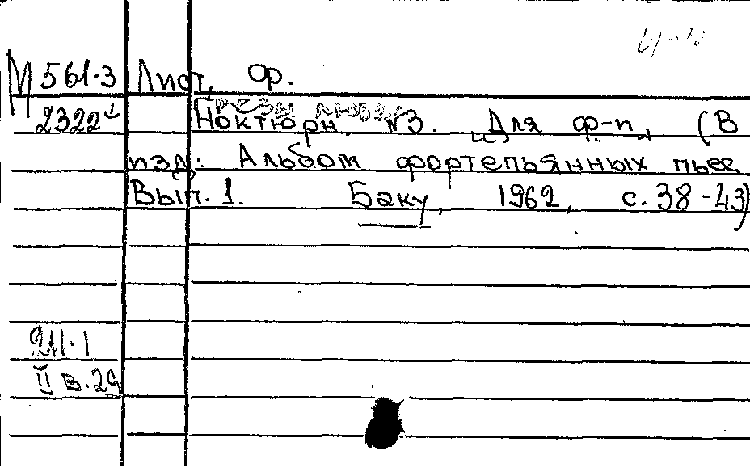 М 561-3 Лист, Ф.
2322 Грезы любви
Ноктюрн. №3. Для ф-п. (В
изд: Альбом фортепьянных пьес.
Вып. 1. Баку, 1962, с. 38-43)
211.1
II в.29